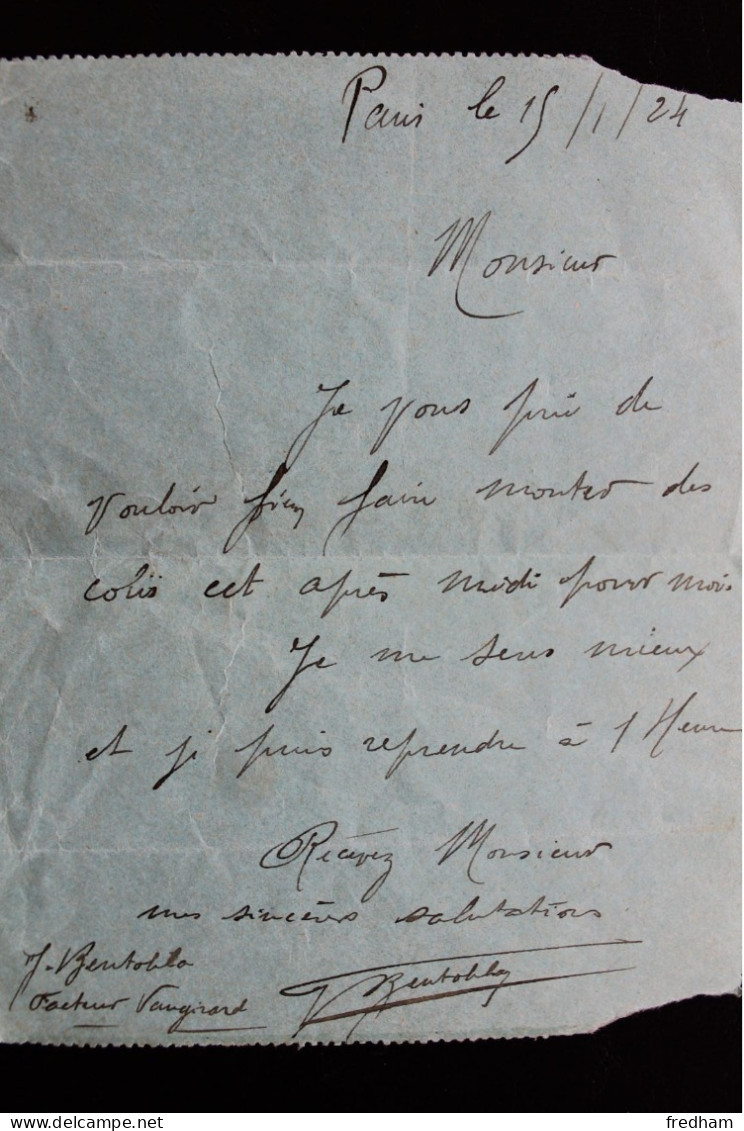 Paris le 15/1/24
Monsieur
Je vous prie de
vouloir bien faire monter des
colis cet après midi pour mois
Je me sens mieux
et je puis reprendre à 1 Heure
Recevez Monsieur
mes sincères salutations
J. Bentoblla
Facteur Vaugirard
fredham